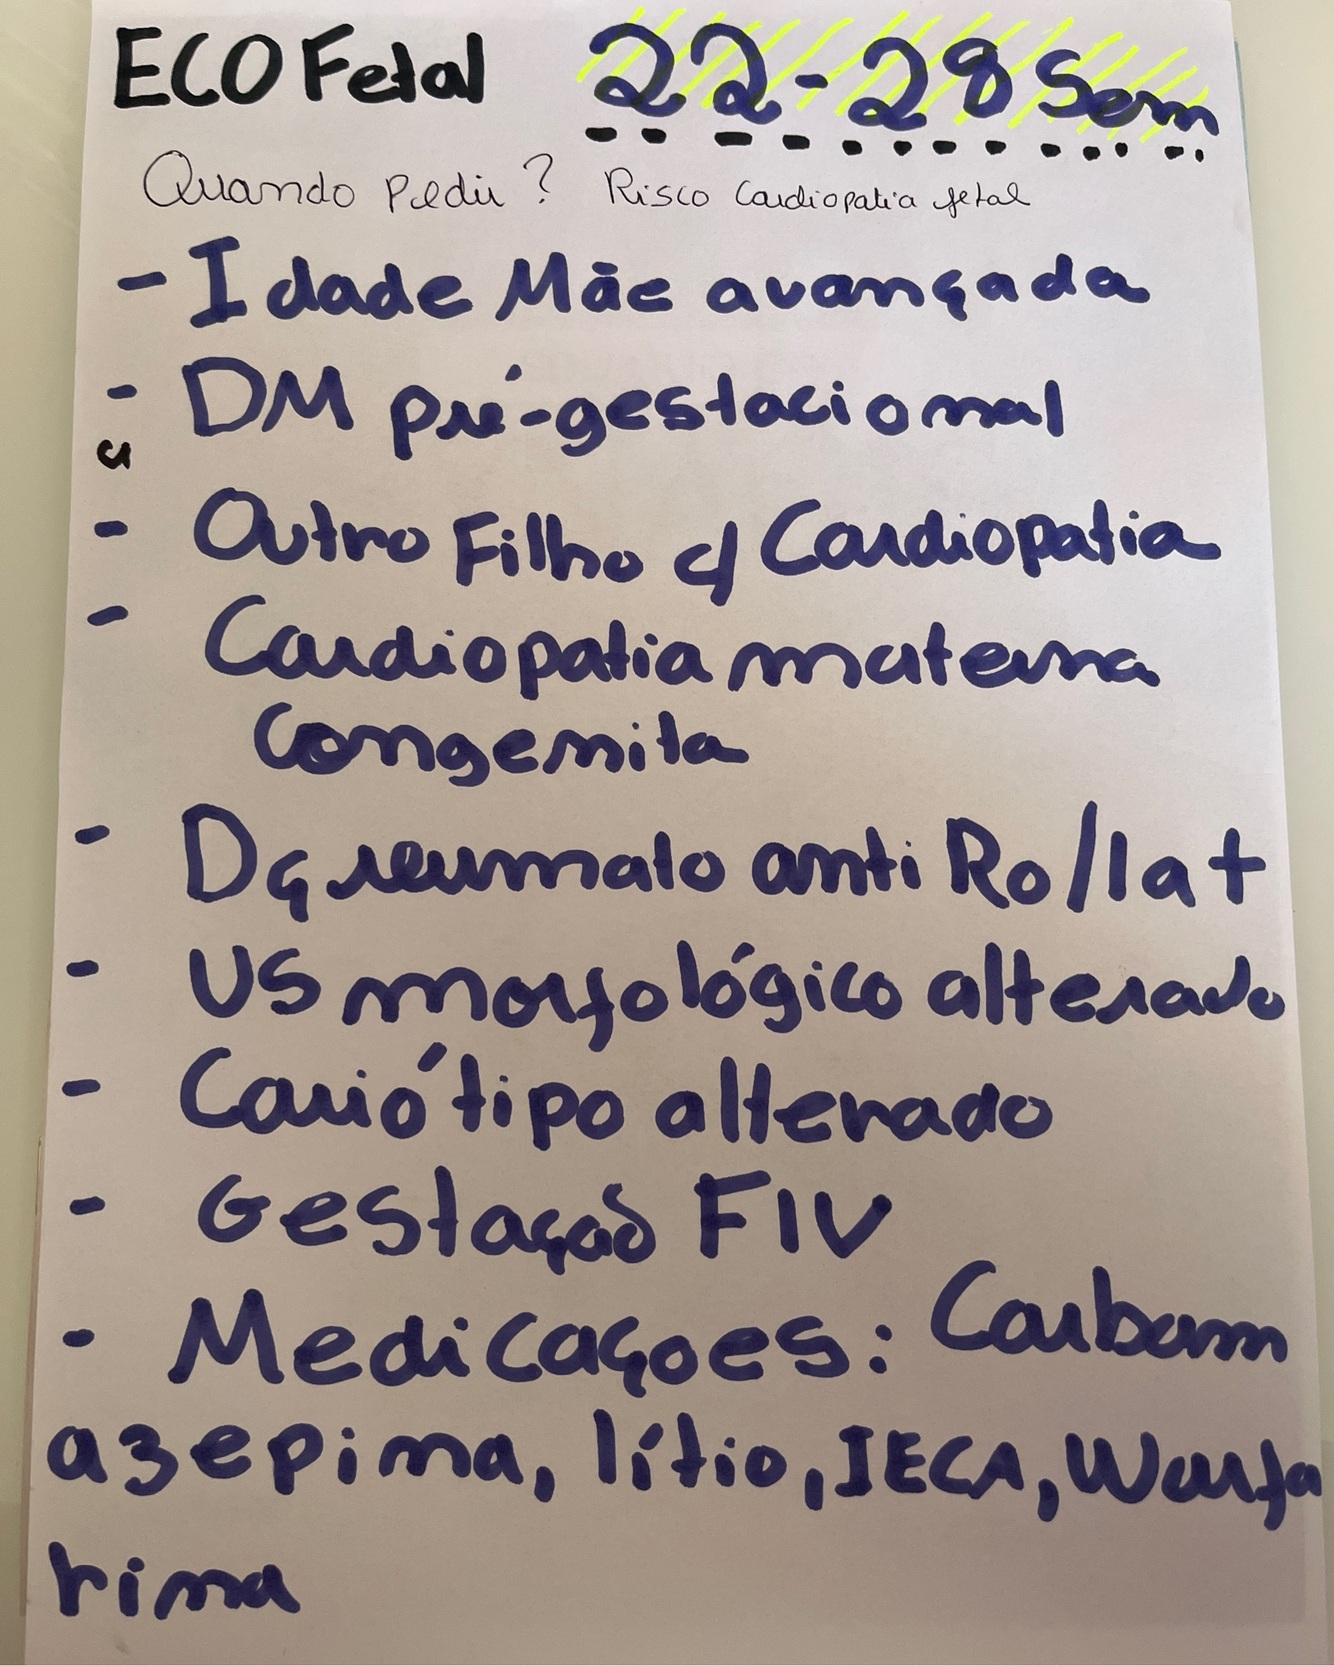 ECO Fetal 22-28 Sem
Quando pedir? Risco Cardiopatia fetal
- Idade Mãe avançada
- DM pré-gestacional
- Outro Filho c/ Cardiopatia
- Cardiopatia materna
Congenita
- Dç reumato anti Ro/la +
- US morfológico alterado
- Cariótipo alterado
- Gestação FIV
- Medicaçoes: Carbam
azepina, lítio, IECA, Warfa
rina